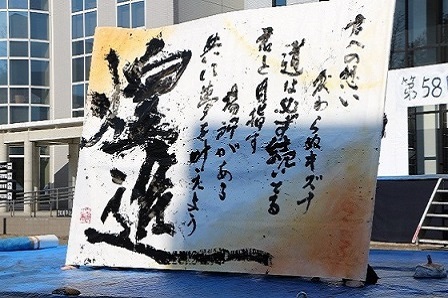 君への想い
変わらぬキズナ
道は必ず続いてる
君と目指す
場所がある
共に夢を叶えよう
煌進
第58